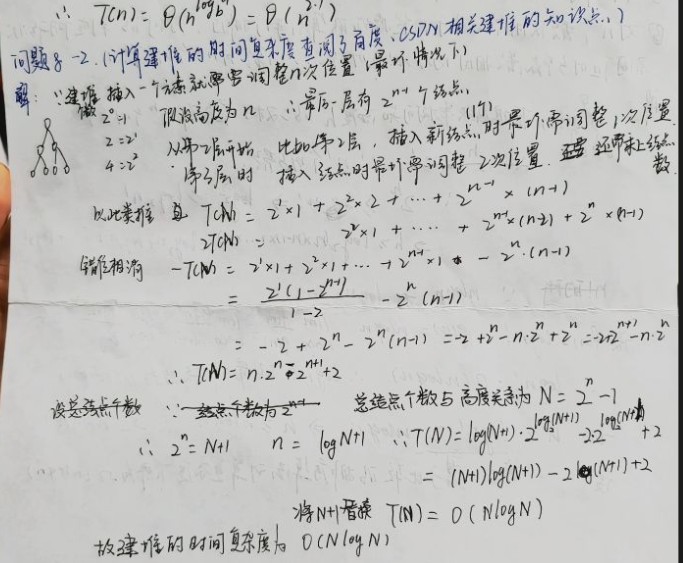 ∴ T(n) = Θ(n^{log_b}) = Θ(n^{2.1})
问题8-2.(计算建堆的时间复杂度查阅多角度、CSDN相关建堆的知识点.)
解: ∵建堆插入一个元素就需要调整n次位置(最坏情况下)
2^0=1 假设高度为n ∴最后一层有 2^{n-1} 个结点
2=2^1 从第2层开始 比如第2层, 插入新结点(1个)时最坏需调整1次位置
4=2^2 第3层时 插入结点时最坏需调整2次位置. 还带来上结点数
以此类推 T(N) = 2^1×1 + 2^2×2 + … + 2^{n-1}×(n-1)
2T(N) = 2^2×1 + … + 2^{n-1}×(n-2) + 2^n×(n-1)
错位相消 -T(N) = 2^1×1 + 2^2×1 + … + 2^{n-1}×1 - 2^n·(n-1)
= 2^1(1-2^{n-1})/(1-2) - 2^n(n-1)
= -2 + 2^n - 2^n(n-1) = -2+2^n-n·2^n+2^n = -2+2^{n+1}-n·2^n
∴ T(N) = n·2^n - 2^{n+1} + 2
设总结点个数 ∵ 结点个数为2^{n-1} 总结点个数与高度关系为 N = 2^n - 1
∴ 2^n = N+1 n = log N+1 ∴ T(N) = log(N+1)·2^{log(N+1)} - 2·2^{log(N+1)} + 2
= (N+1)log(N+1) - 2(N+1) + 2
将N+1替换 T(N) = O(NlogN)
故建堆的时间复杂度为 O(NlogN)